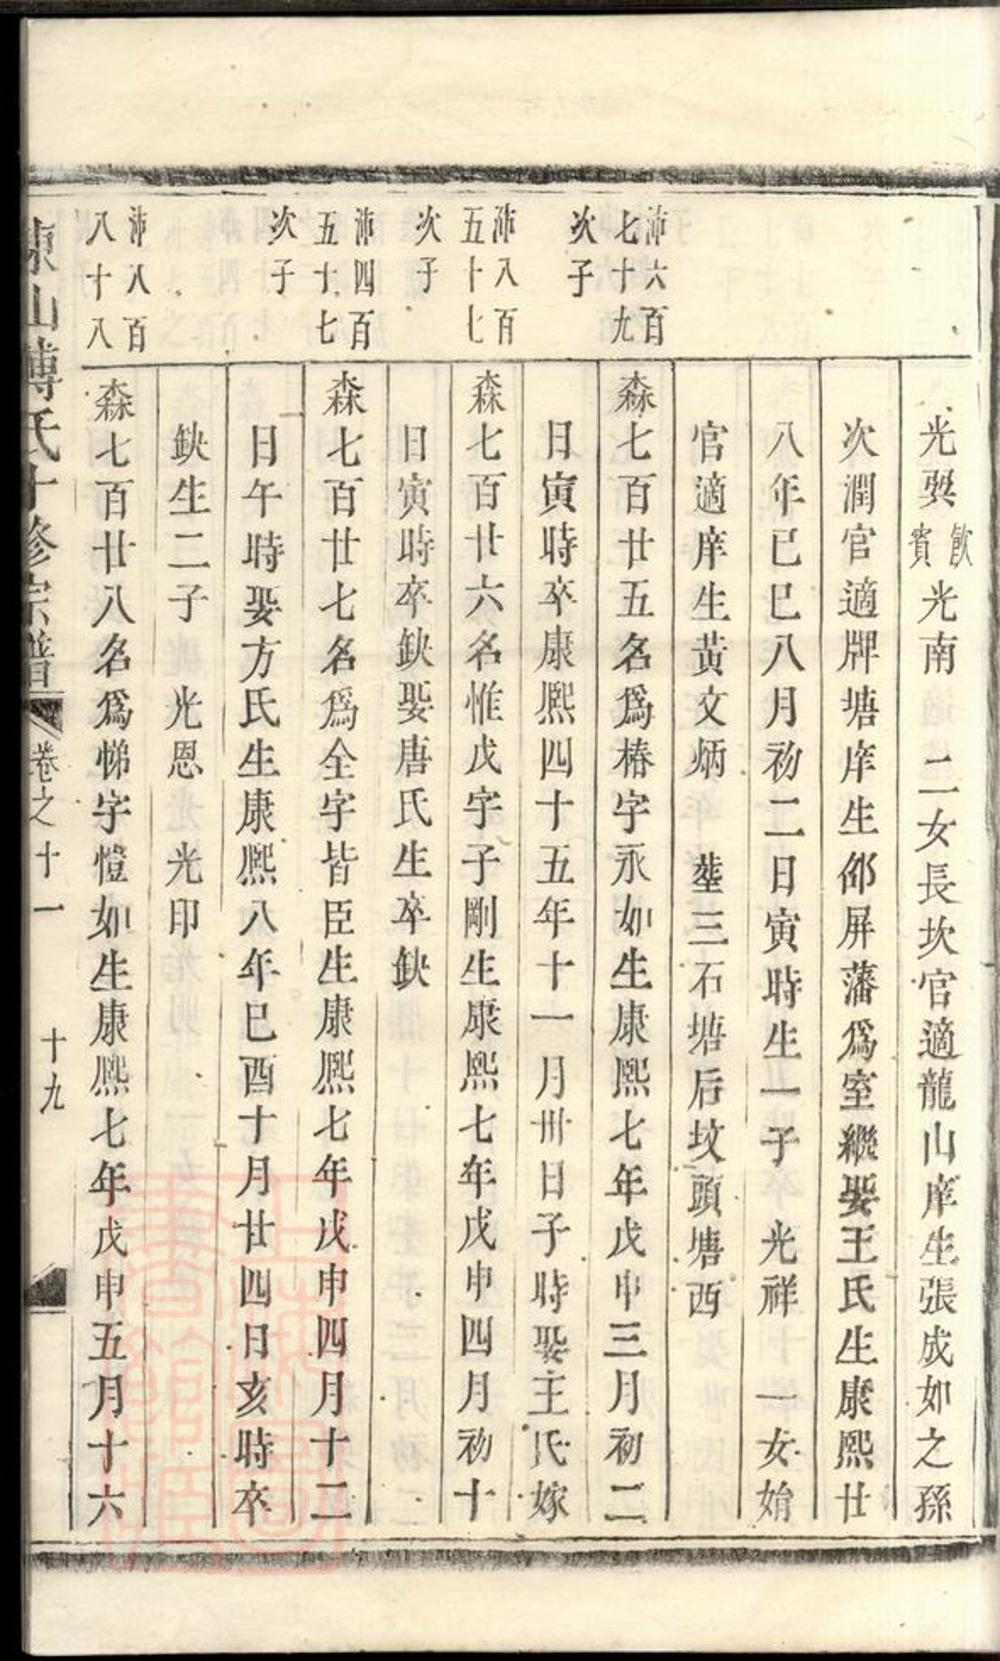 光㢲飲賓光南　二女長坎官適龍山庠生張成如之孫
次潤官適牌塘庠生邵屏藩爲室繼娶王氏生康熙廿
八年己巳八月初二日寅時生一子　光祥　一女始
官適庠生黃文炳　塟三石塘后坟頭塘西
沛六百七十九次子
森七百廿五名爲椿字永如生康熙七年戊申三月初二
日寅時卒康熙四十五年十一月卅日子時娶主氏嫁
沛八百五十七次子
森七百廿六名惟戊字子剛生康熙七年戊申四月初十
日寅時卒缺娶唐氏生卒缺
沛四百五十七次子
森七百廿七名爲全字皆臣生康熙七年戊申四月十二
日午時娶方氏生康熙八年巳酉十月廿四日亥時卒
缺生二子　光恩　光印
沛八百八十八
森七百廿八名爲悌字愷如生康熙七年戊申五月十六
東山傅氏十修宗譜　卷之十一　十九
上海圖書館藏